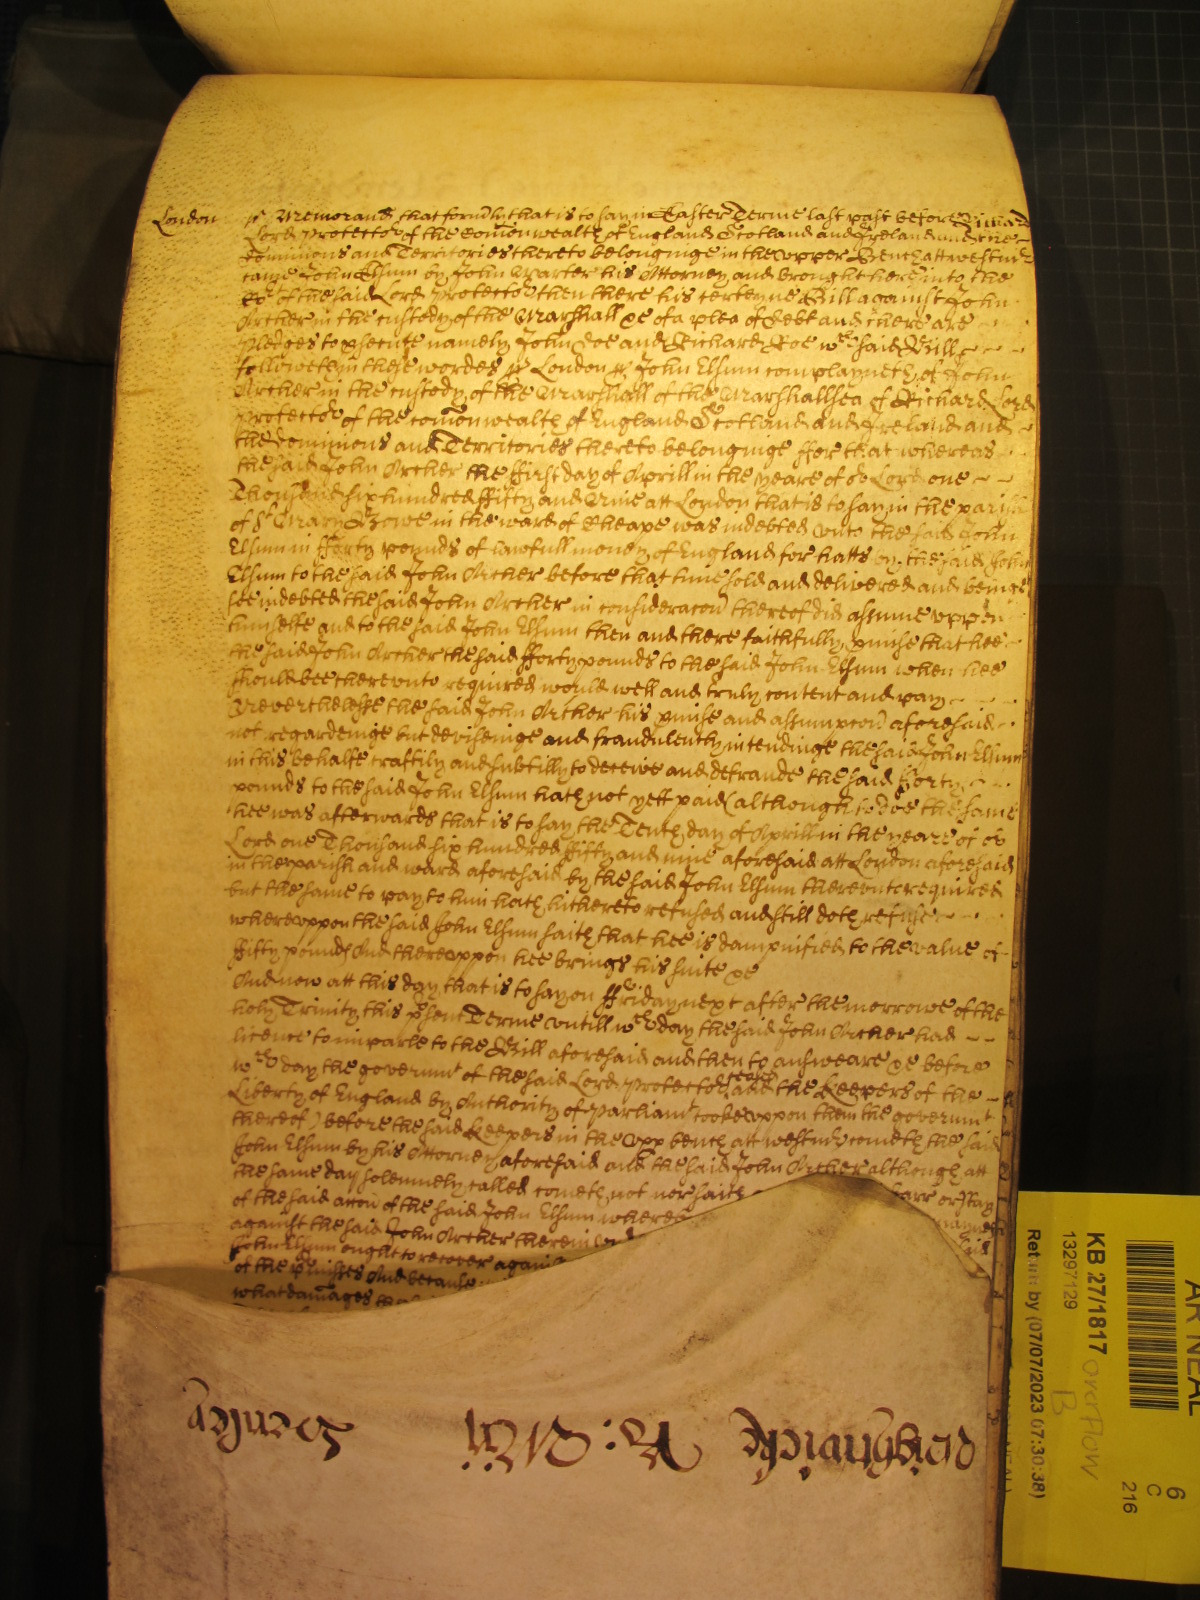 London ss Memorand that formerly that is to say in Easter Terme last past before Richard
Lord Protector of the Comonwealth of England Scotland and Ireland and the
Dominions and Territories thereto belonginge in the upper Bench att Westmr
came John Elsum by John Warter his Attorney and brought here into the
Cort of the said Lord Protector then there his certeyne Bill against John
Archer in the custody of the Marshall &c of a plea of Debt and there are
Pledges to psecute namely John Doe and Richard Roe wch said Bill
followeth in these wordes ss London ss John Elsum complayneth of John
Archer in the custody of the Marshall of the Marshallsea of Richard Lord
Protector of the comonwealth of England Scotland and Ireland and
the Dominions and Territories thereto belonginge ffor that whereas
the said John Archer the ffirst day of Aprill in the yeare of or Lord one
Thousand six hundred ffifty and Nine att London that is to say in the parish
of St Mary Bowe in the ward of Cheape was indebted unto the said John
Elsum in fforty pounds of lawfull money of England for hatts by the said John
Elsum to the said John Archer before that time sold and delivered and beinge
soe indebted the said John Archer in consideracon thereof did assume uppon
himselfe and to the said John Elsum then and there faithfully pmise that hee
the said John Archer the said fforty pounds to the said John Elsum when hee
should bee thereunto required would well and truly content and pay
Neverthelesse the said John Archer his pmise and assumpcon aforesaid
not regardeinge but deviseinge and fraudulently intendinge the said John Elsum
in this behalfe craftily and subtilly to deceive and defraude the said fforty
pounds to the said John Elsum hath not yett paid (although to doe the same
hee was afterwards that is to say the Tenth day of Aprill in the yeare of or
Lord one Thousand six hundred ffifty and nine aforesaid att London aforesaid
in the parish and ward aforesaid by the said John Elsum thereunto required
but the same to pay to him hath hithereto refused and still doth refuse
whereuppon the said John Elsum saith that hee is dampnified to the value of
ffifty pounds And thereuppon hee brings his suite &c
And now att this day that is to say on ffriday next after the morrowe of the
holy Trinity this psent Terme untill wch day the said John Archer had
licence to imparle to the Bill aforesaid and then to answeare &c before
wch day the governmt of the said Lord Protector ceased and the Keepers of the
Liberty of England by Authority of Parliamt tooke uppon them the governmt
thereof) before the said Keepers in the upp bench att westmr cometh the said
John Elsum by his Attorney aforesaid and the said John Archer although att
the same day solemnely called cometh not nor saith barr or stay
of the said accon of the said John Elsum whereby
against the said John Archer therein
John Elsum ought to recover against
of the pmisses And because
what damages the
KB 27/1817
13297129
Return by (07/07/2023 07:30:38)
overflow
B
6
C
216